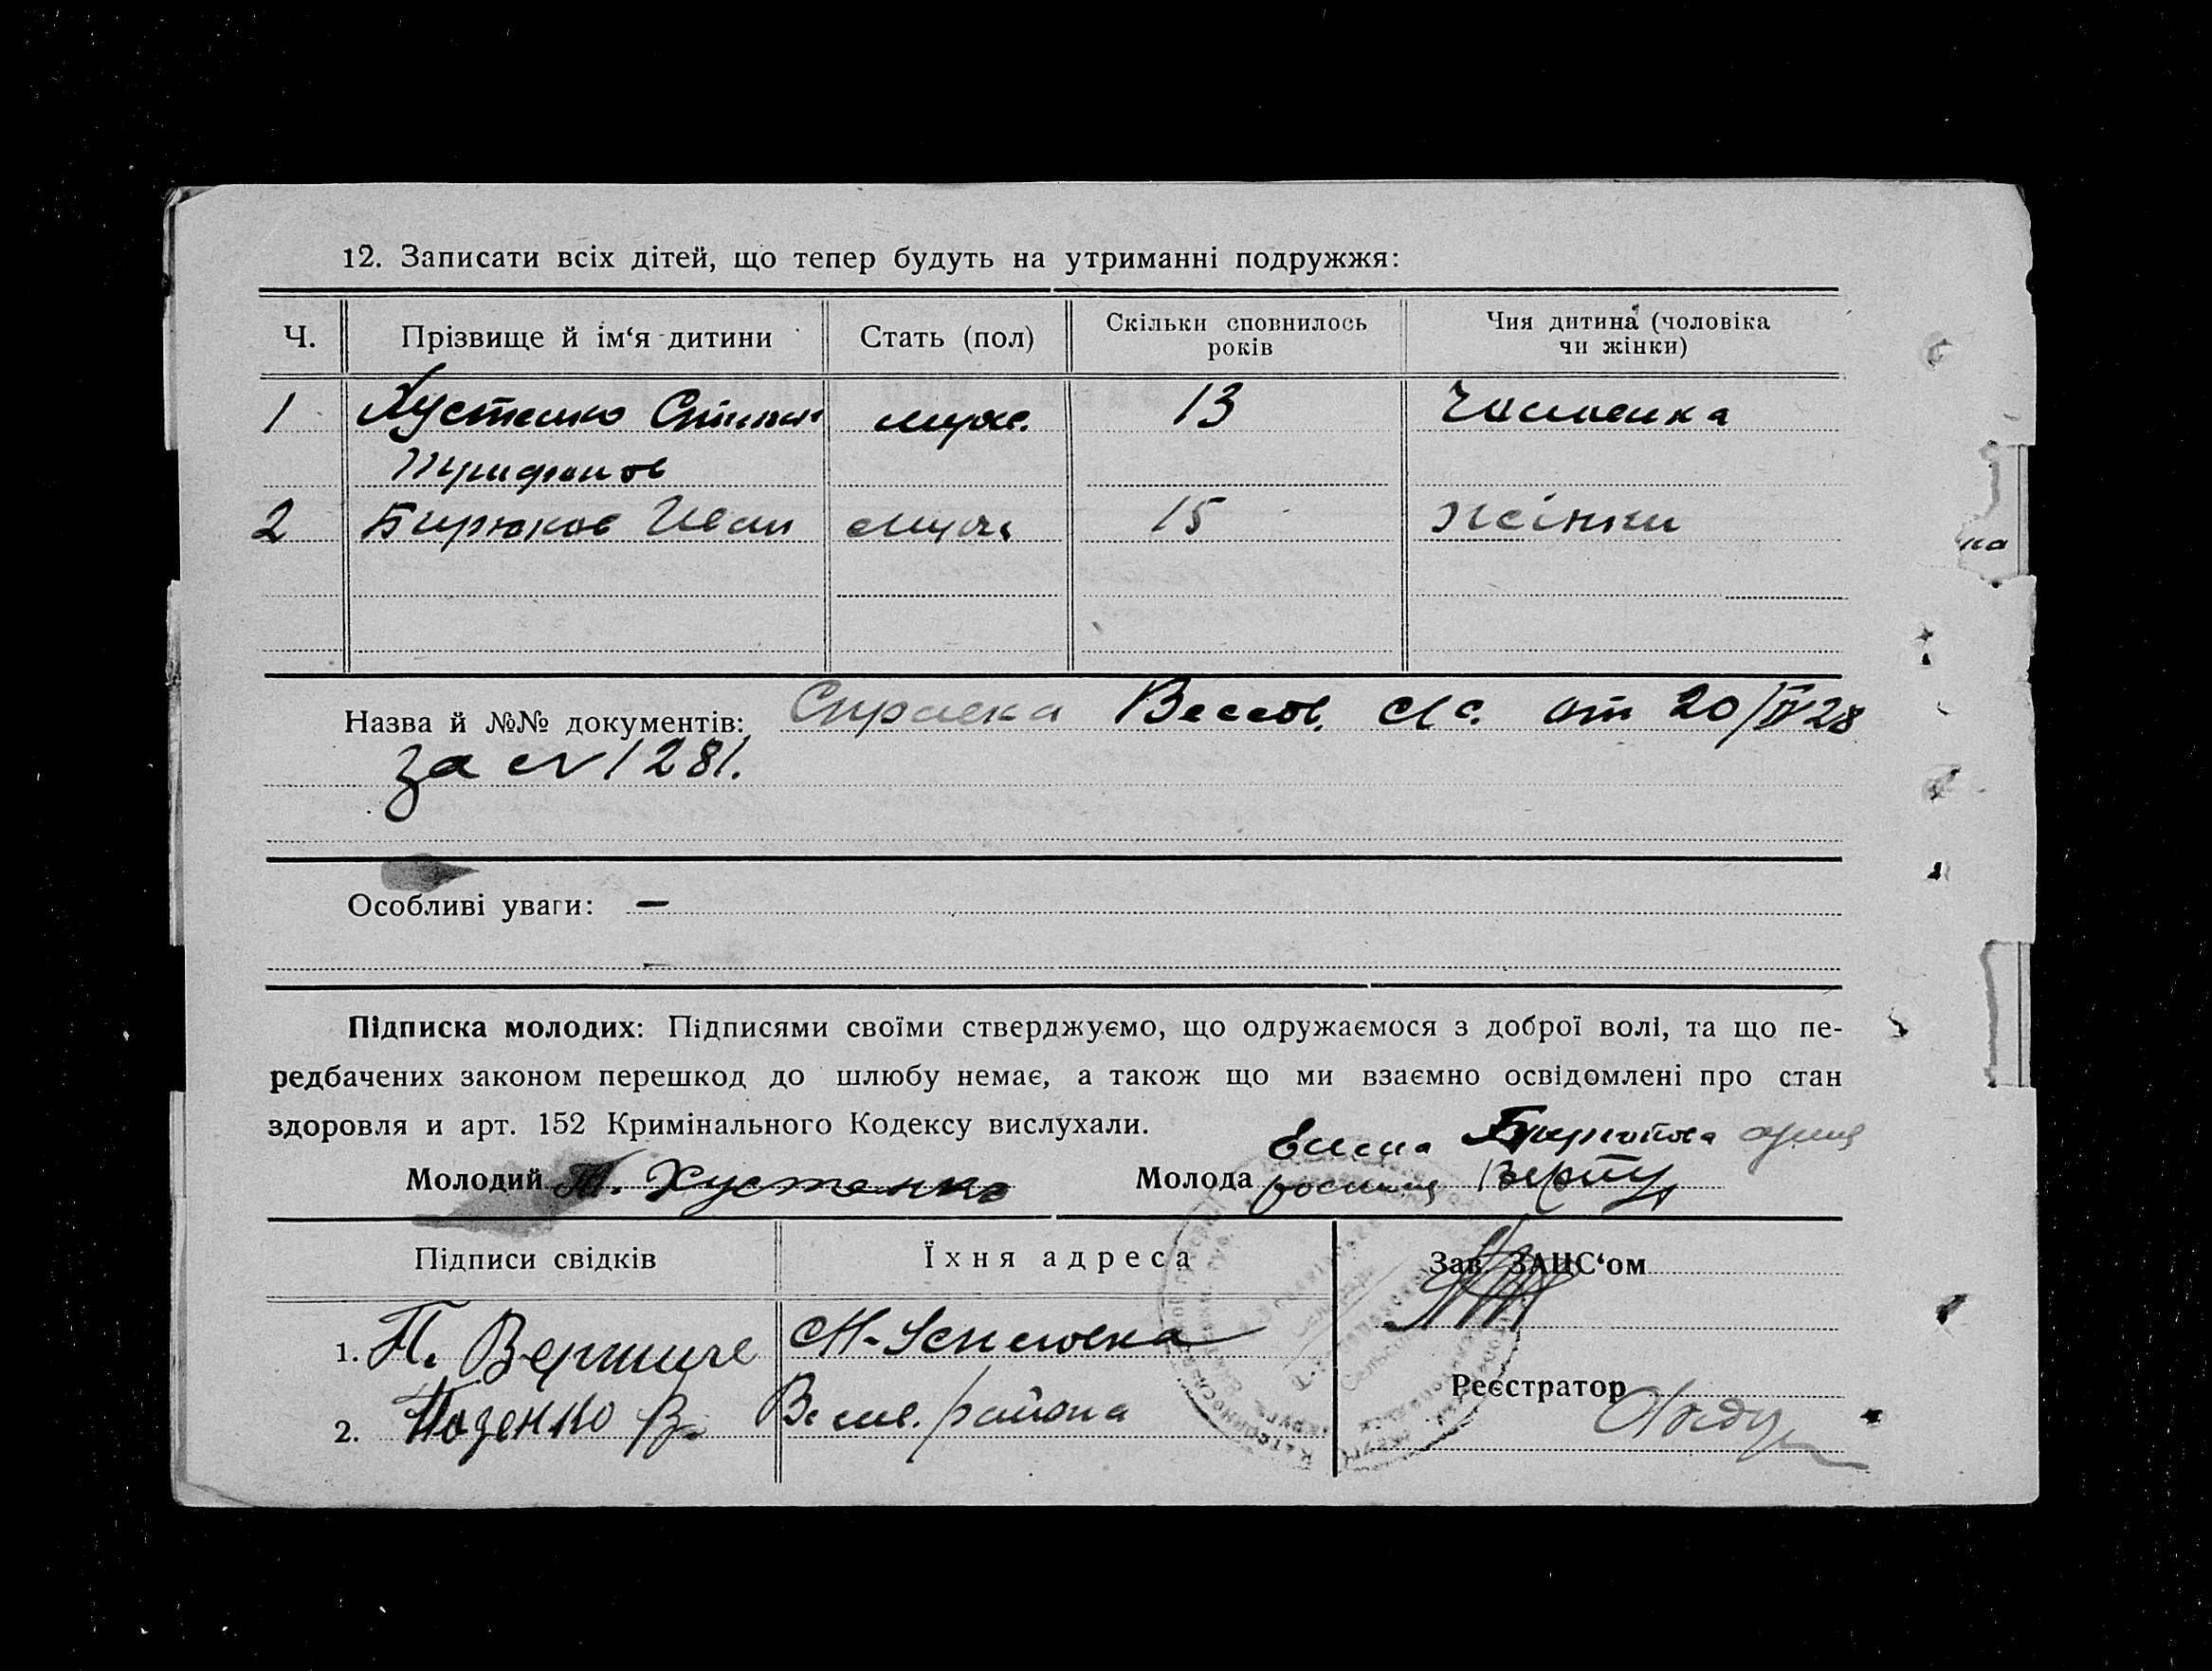 12. Записати всіх дітей, що тепер будуть на утриманні подружжя:
Ч. Прізвище й ім‘я дитини Стать (пол) Скільки сповнилось років Чия дитина (чоловіка чи жінки)
1 Хустенко Степан муж. 13
Трифонов
2 Бирюков Иван муж. 15 жінки
Назва й №№ документів: Справка Весел. с/с. от 20/IV 28
за № 1281.
Особливі уваги: —
—
Підписка молодих: Підписями своїми стверджуємо, що одружаємося з доброї волі, та що пе-
редбачених законом перешкод до шлюбу немає, а також що ми взаємно освідомлені про стан
здоровля и арт. 152 Кримінального Кодексу вислухали.
Молодий Т. Хустенко Молода
Підписи свідків Їхня адреса Зав. ЗАЦС‘ом
1. П.
Реєстратор
2. В. Весел. района
на